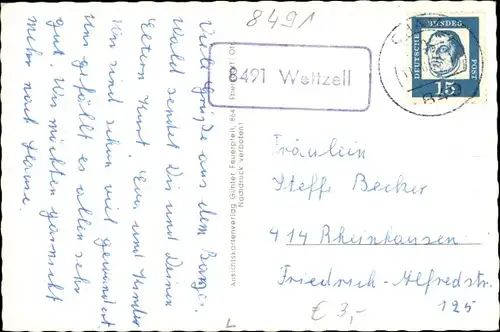 8491
8491 Weitzell
DEUTSCHE BUNDESPOST
15
Viele Grüße aus dem Bayr.
Wald sendet Dir und Deinen
Eltern Kurt, Eva und Kinder
Wir sind schon viel gewandert
uns gefällt es allen sehr
gut. Wir möchten garnicht
mehr nach Hause.
Ansichtskartenverlag Günter Feuerpfeil, 864
Nachdruck verboten!
Fräulein
Steffi Becker
414 Rheinhausen
Friedrich-Alfredstr.
125
€ 3,-
L